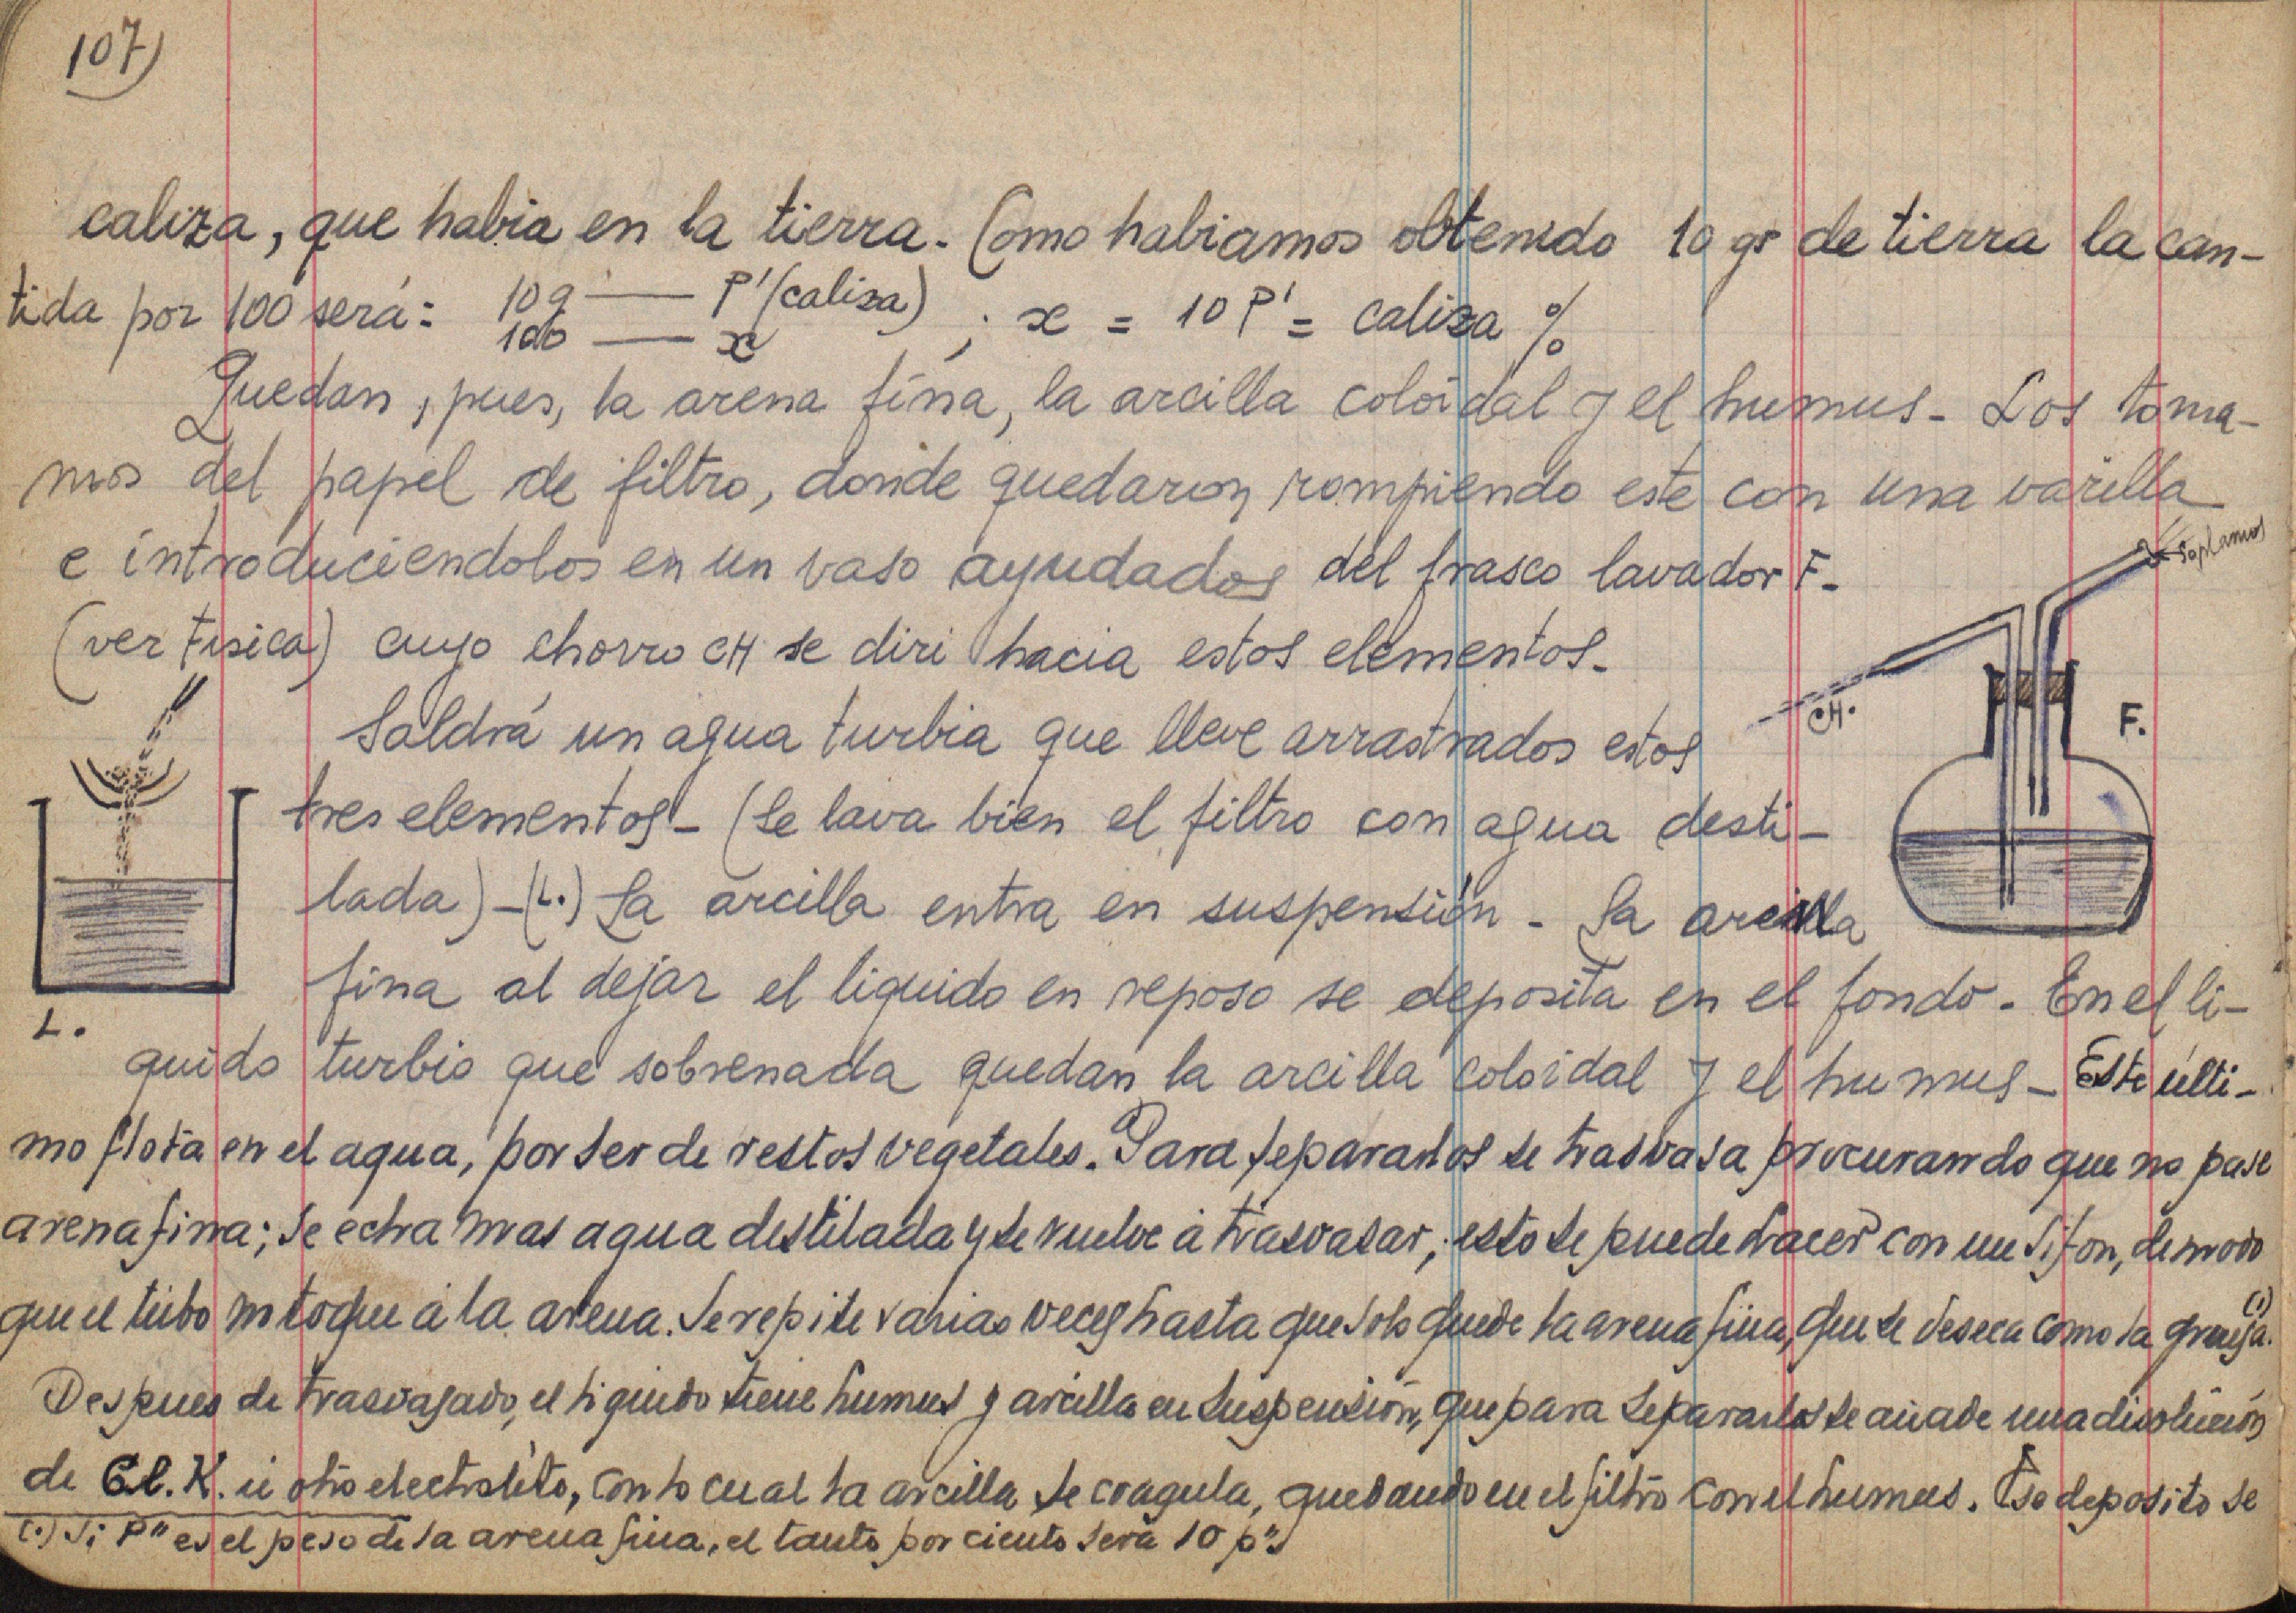 107)
caliza, que habia en la tierra. Como habiamos obtenido 10 gr de tierra la can-
tida por 100 será: 10g — P'(caliza) ; x = 10 P' = caliza %
100 — x
Quedan, pues, la arena fina, la arcilla coloidal y el humus. Los toma-
mos del papel de filtro, donde quedaron, rompiendo este con una varilla
e introduciendolos en un vaso ayudados del frasco lavador F.
soplamos
(ver Fisica) cuyo chorro CH se diri hacia estos elementos.
CH.
F.
Saldrá un agua turbia que lleve arrastrados estos
tres elementos- (Se lava bien el filtro con agua desti-
lada)-(L.) La arcilla entra en suspensión - La arcilla
fina al dejar el liquido en reposo se deposita en el fondo. En el li-
L.
quido turbio que sobrenada quedan la arcilla coloidal y el humus- Este últi-
mo flota en el agua, por ser de restos vegetales. Para separarlos se trasvasa procurando que no pase
arena fina; se echa mas agua destilada y se vuelve á trasvasar; esto se puede hacer con un sifon, de modo
que el tubo no toque á la arena. Se repite varias veces hasta que solo quede la arena fina, que se deseca como la gruesa. (1)
Despues de trasvasado, el liquido tiene humus y arcilla en suspension, que para separarlos se añade una disolución
de Cl. K. ú otro electrolito, con lo cual la arcilla se coagula, quedando en el filtro con el humus. Ese deposito se
(1) Si P" es el peso de la arena fina, el tanto por ciento será 10 p"